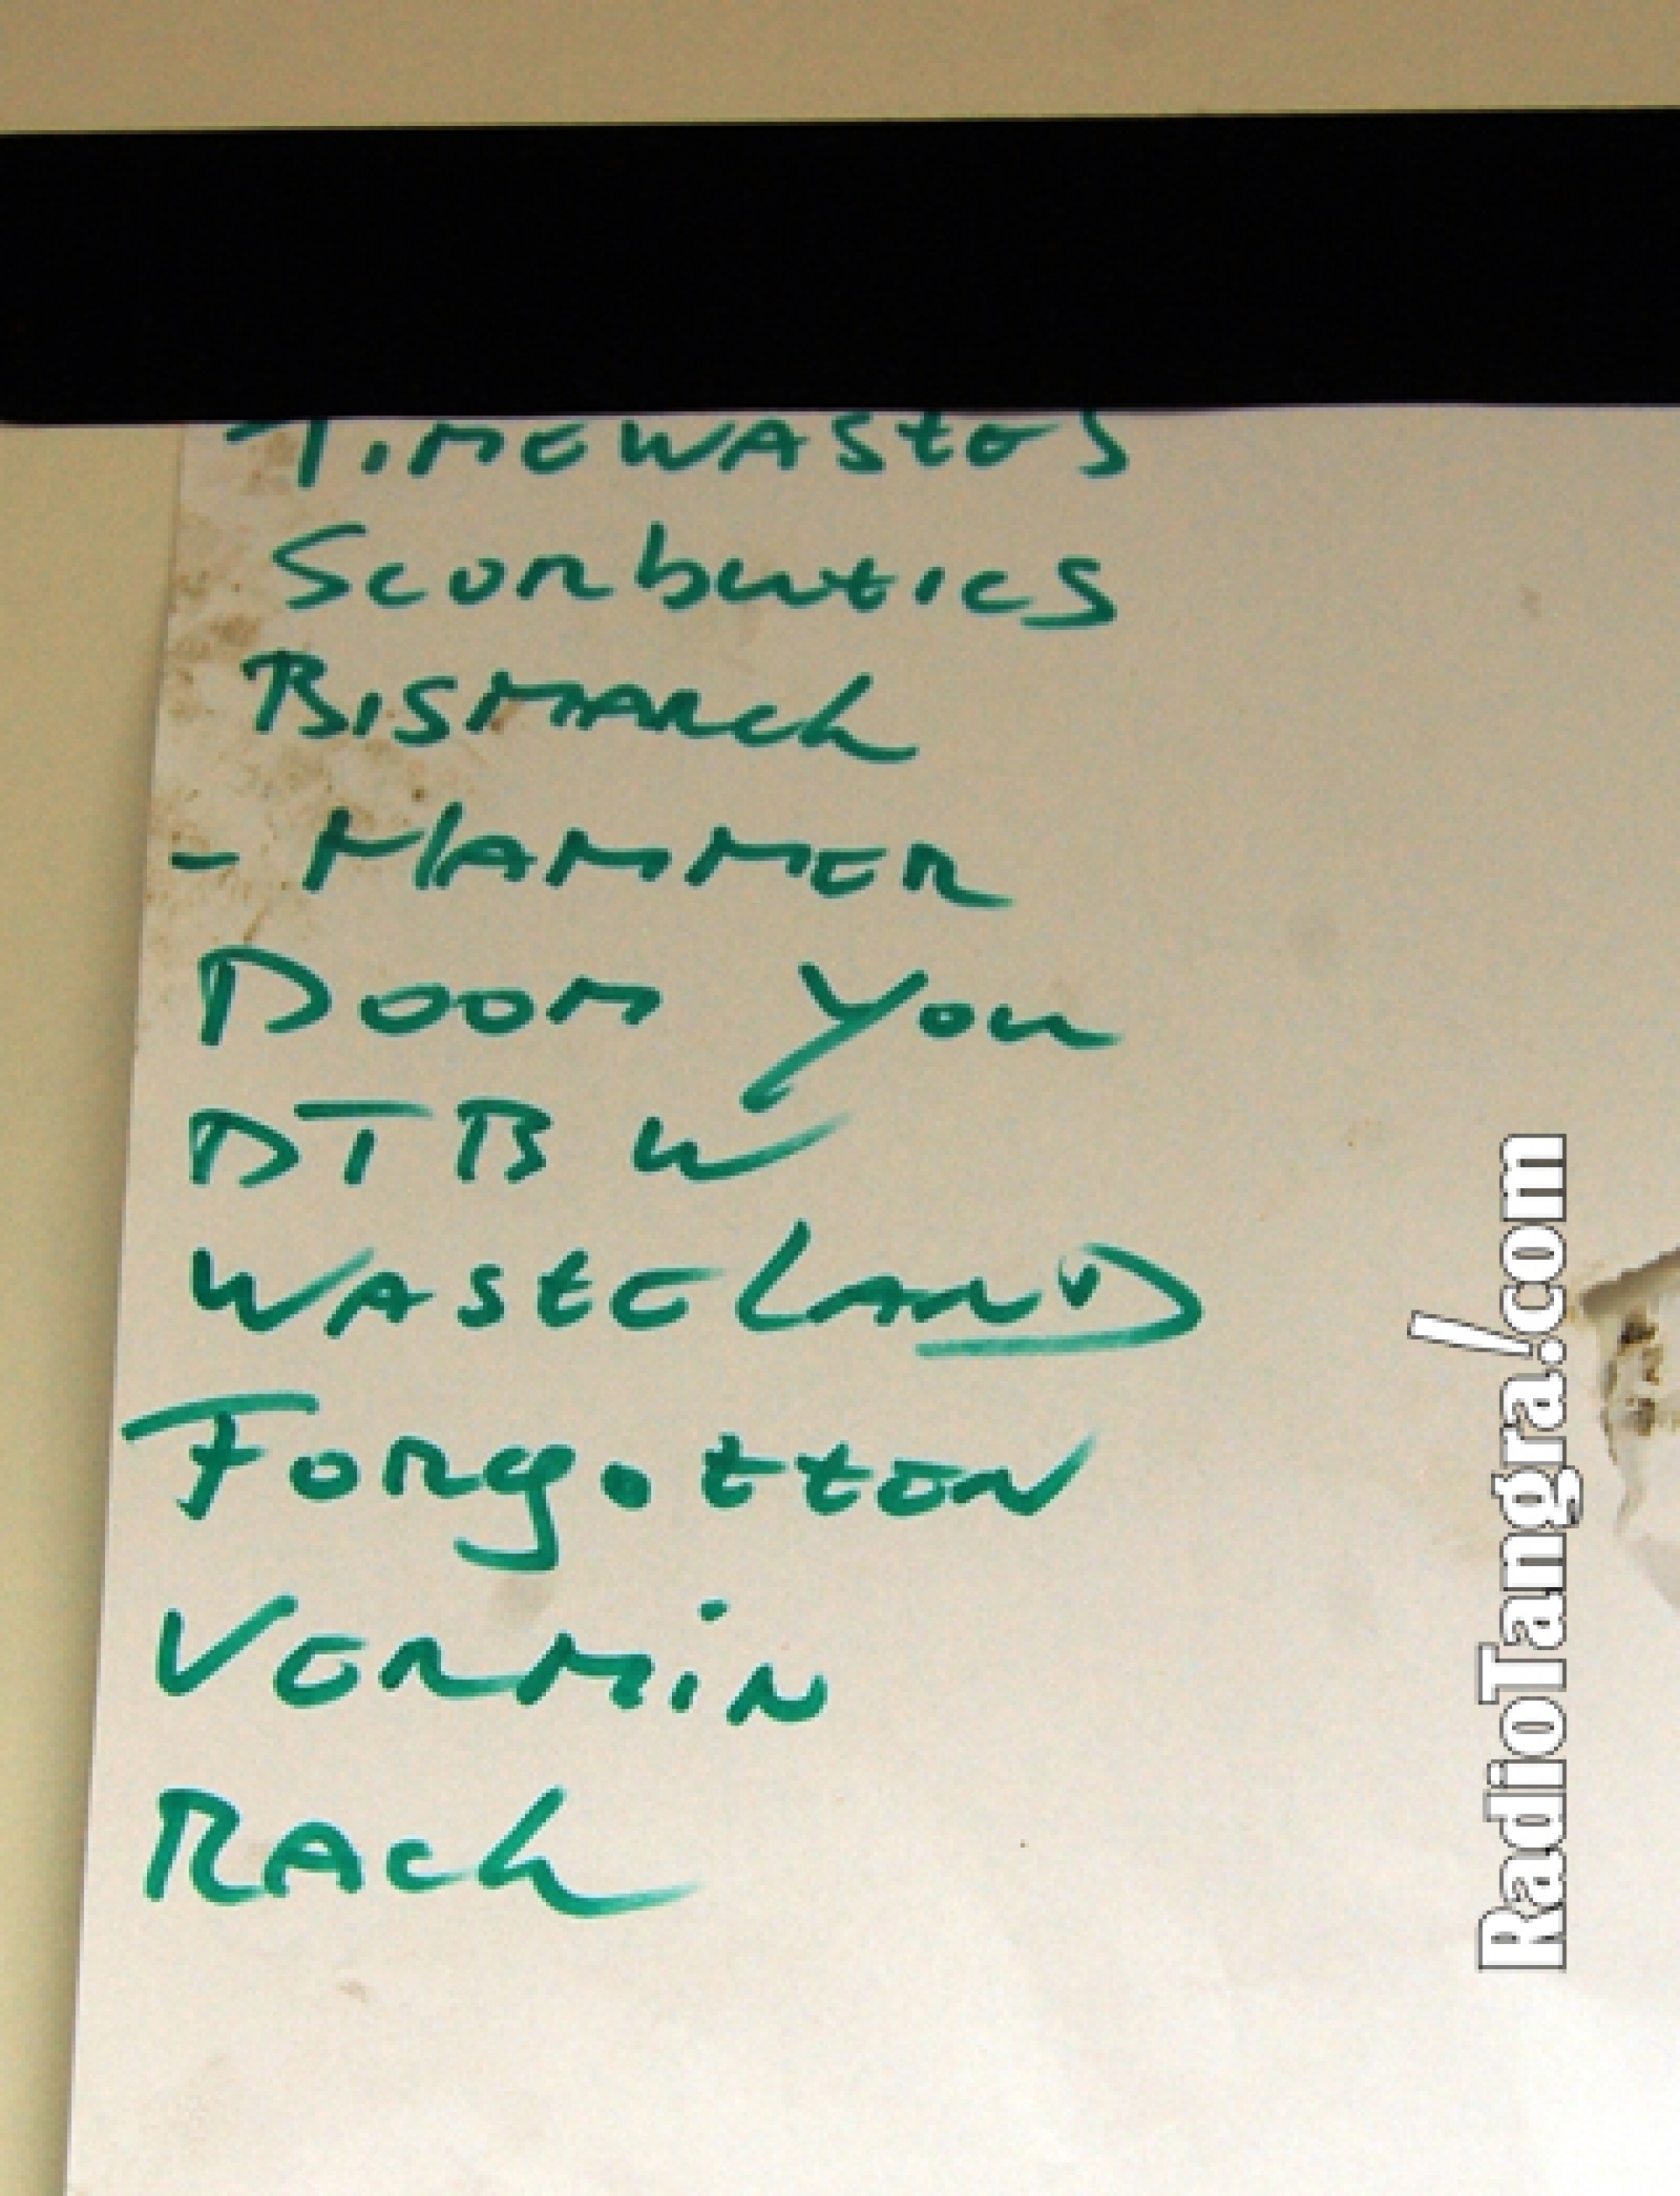 TIMEWASTES
Scorbutics
BISMARCK
- HAMMER
DOOM YOU
DTBW
WASTELAND
Forgotten
VERMiN
RACK
RadioTangra!.com